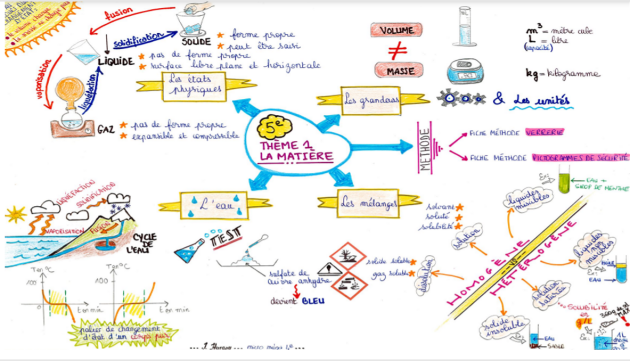 fusion
solidification
SOLIDE
★ forme propre
★ peut être saisi
LIQUIDE
★ pas de forme propre
★ surface libre plane et horizontale
vaporisation
liquéfaction
GAZ
★ pas de forme propre
★ expansible et compressible
Les états physiques
VOLUME
≠
MASSE
m³ = mètre cube
L = litre
(capacité)
kg = kilogramme
Les grandeurs
& Les unités
5e
THÈME 1
LA MATIÈRE
MÉTHODE
FICHE MÉTHODE VERRERIE
FICHE MÉTHODE PICTOGRAMMES DE SÉCURITÉ
L'eau
TEST
sulfate de
cuivre anhydre
devient BLEU
LIQUÉFACTION
SOLIDIFICATION
VAPORISATION
FUSION
CYCLE
DE
L'EAU
T en °C
100
t en min
T en °C
100
t en min
palier de changement
d'état d'un corps pur
Les mélanges
solvant
soluté
solubilité
solution
dissolution
solide soluble
gaz soluble
HOMOGÈNE
HÉTÉROGÈNE
liquides miscibles
EAU +
SIROP DE MENTHE
liquides non miscibles
EAU
solide insoluble
EAU
+ SABLE
SOLUBILITÉ